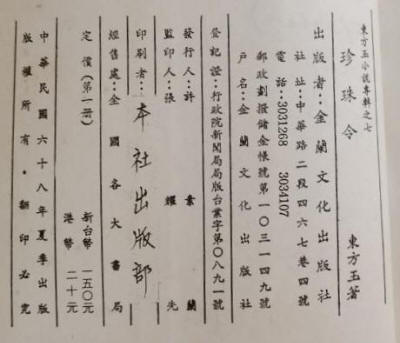 東方玉小説專輯之七
珍珠令　東方玉著
出版者：金蘭文化出版社
社址：中華路二段四六七巷四號
電話：3031268　3034107
郵政劃撥儲金帳號第一〇三一四九號
戶名：金蘭文化出版社
登記證：行政院新聞局局版台業字第〇八九一號
發行人：許素蘭
監印人：張耀先
印刷者：本社出版部
經售處：全國各大書局
定價（第一册）新台幣一五〇元
港幣二十元
中華民國六十八年夏季出版
版權所有・翻印必究